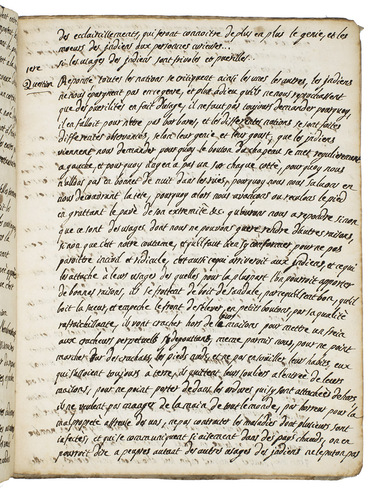 des ecclaircissements, qui feront connoitre de plus en plus le genie, et les
moeurs des jndiens aux personnes curieuses...
1ere
Question
si les usages des jndiens sont frivoles et puerilles.
Réponse toutes les nations se critiquent ainsi les unes les autres, les jndiens
ne nous épargnent pas en ce genre, et plus adieu qu'ils ne nous
que des puerilités en fait d'usage, il ne faut pas toujours demander pourquoy,
il en falloit pour n'être pas barbares, et les differentes nations se sont faites
differentes observances, selon leur genie, et leur goust, que les jndiens
viennent nous demander pourquoy le bouton du chapeau se met regulierement
a gauche, et pourquoy il n'y en a pas un sur chaque cotté, pourquoy nous
n'allons pas en bonnet de nuit dans les rues, pourquoy nous nous saluons en
nous decouvrant la tête, pourquoy alors nous avancons ou reculons le pied
en grattant le pavé de son extremité &c. qu'avons nous a repondre si non
que ce sont des usages dont nous ne pouvons guere rendre d'autres raisons,
si non que c'est notre coutume, et qu'il faut bien s'y conformer pour ne pas
paroitre incivil et ridicule, c'est aussi ce qui arriveroit aux jndiens, et ce qui
les attache a leurs usages des quelles pour la pluspart l'on pourroit apporter
de bonnes raisons, ils se frottent de bois de sandale, parcequ'il sent bon, qu'il
boit la sueur, et empeche le front de s'élever, en petits boutons, par sa qualité
rafraichissante, ils vont cracher hors de leurs maisons pour mettre un frein
aux cracheurs perpetuels si degoutans, meme parmi nous, pour ne point
marcher sur des crachats, les pieds nuds, et ne pas en souiller leurs habits, eux
qui s'assoient toujours a terre, ils quittent leurs souliers a l'entrée de leurs
maisons, pour ne point porter dedans les ordures qui s'y sont attachées dehors
ils ne veulent pas manger de la main de tout le monde, par horreur pour la
malpropreté affreuse du bas, ne pas contracter les maladies dont plusieurs sont
infectés, et qui se communiquent si aisement dans des pays chauds, on en
pourroit dire a peu pres autant des autres usages des jndiens a la